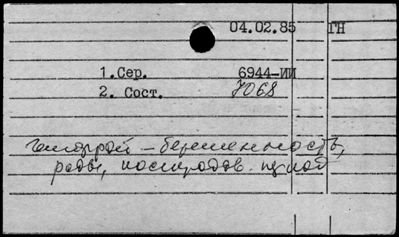 04.02.85 ГН
1. Сер. 6944-ИИ
2. Сост. 7068
Геморрой – беременность,
роды, послеродов. период